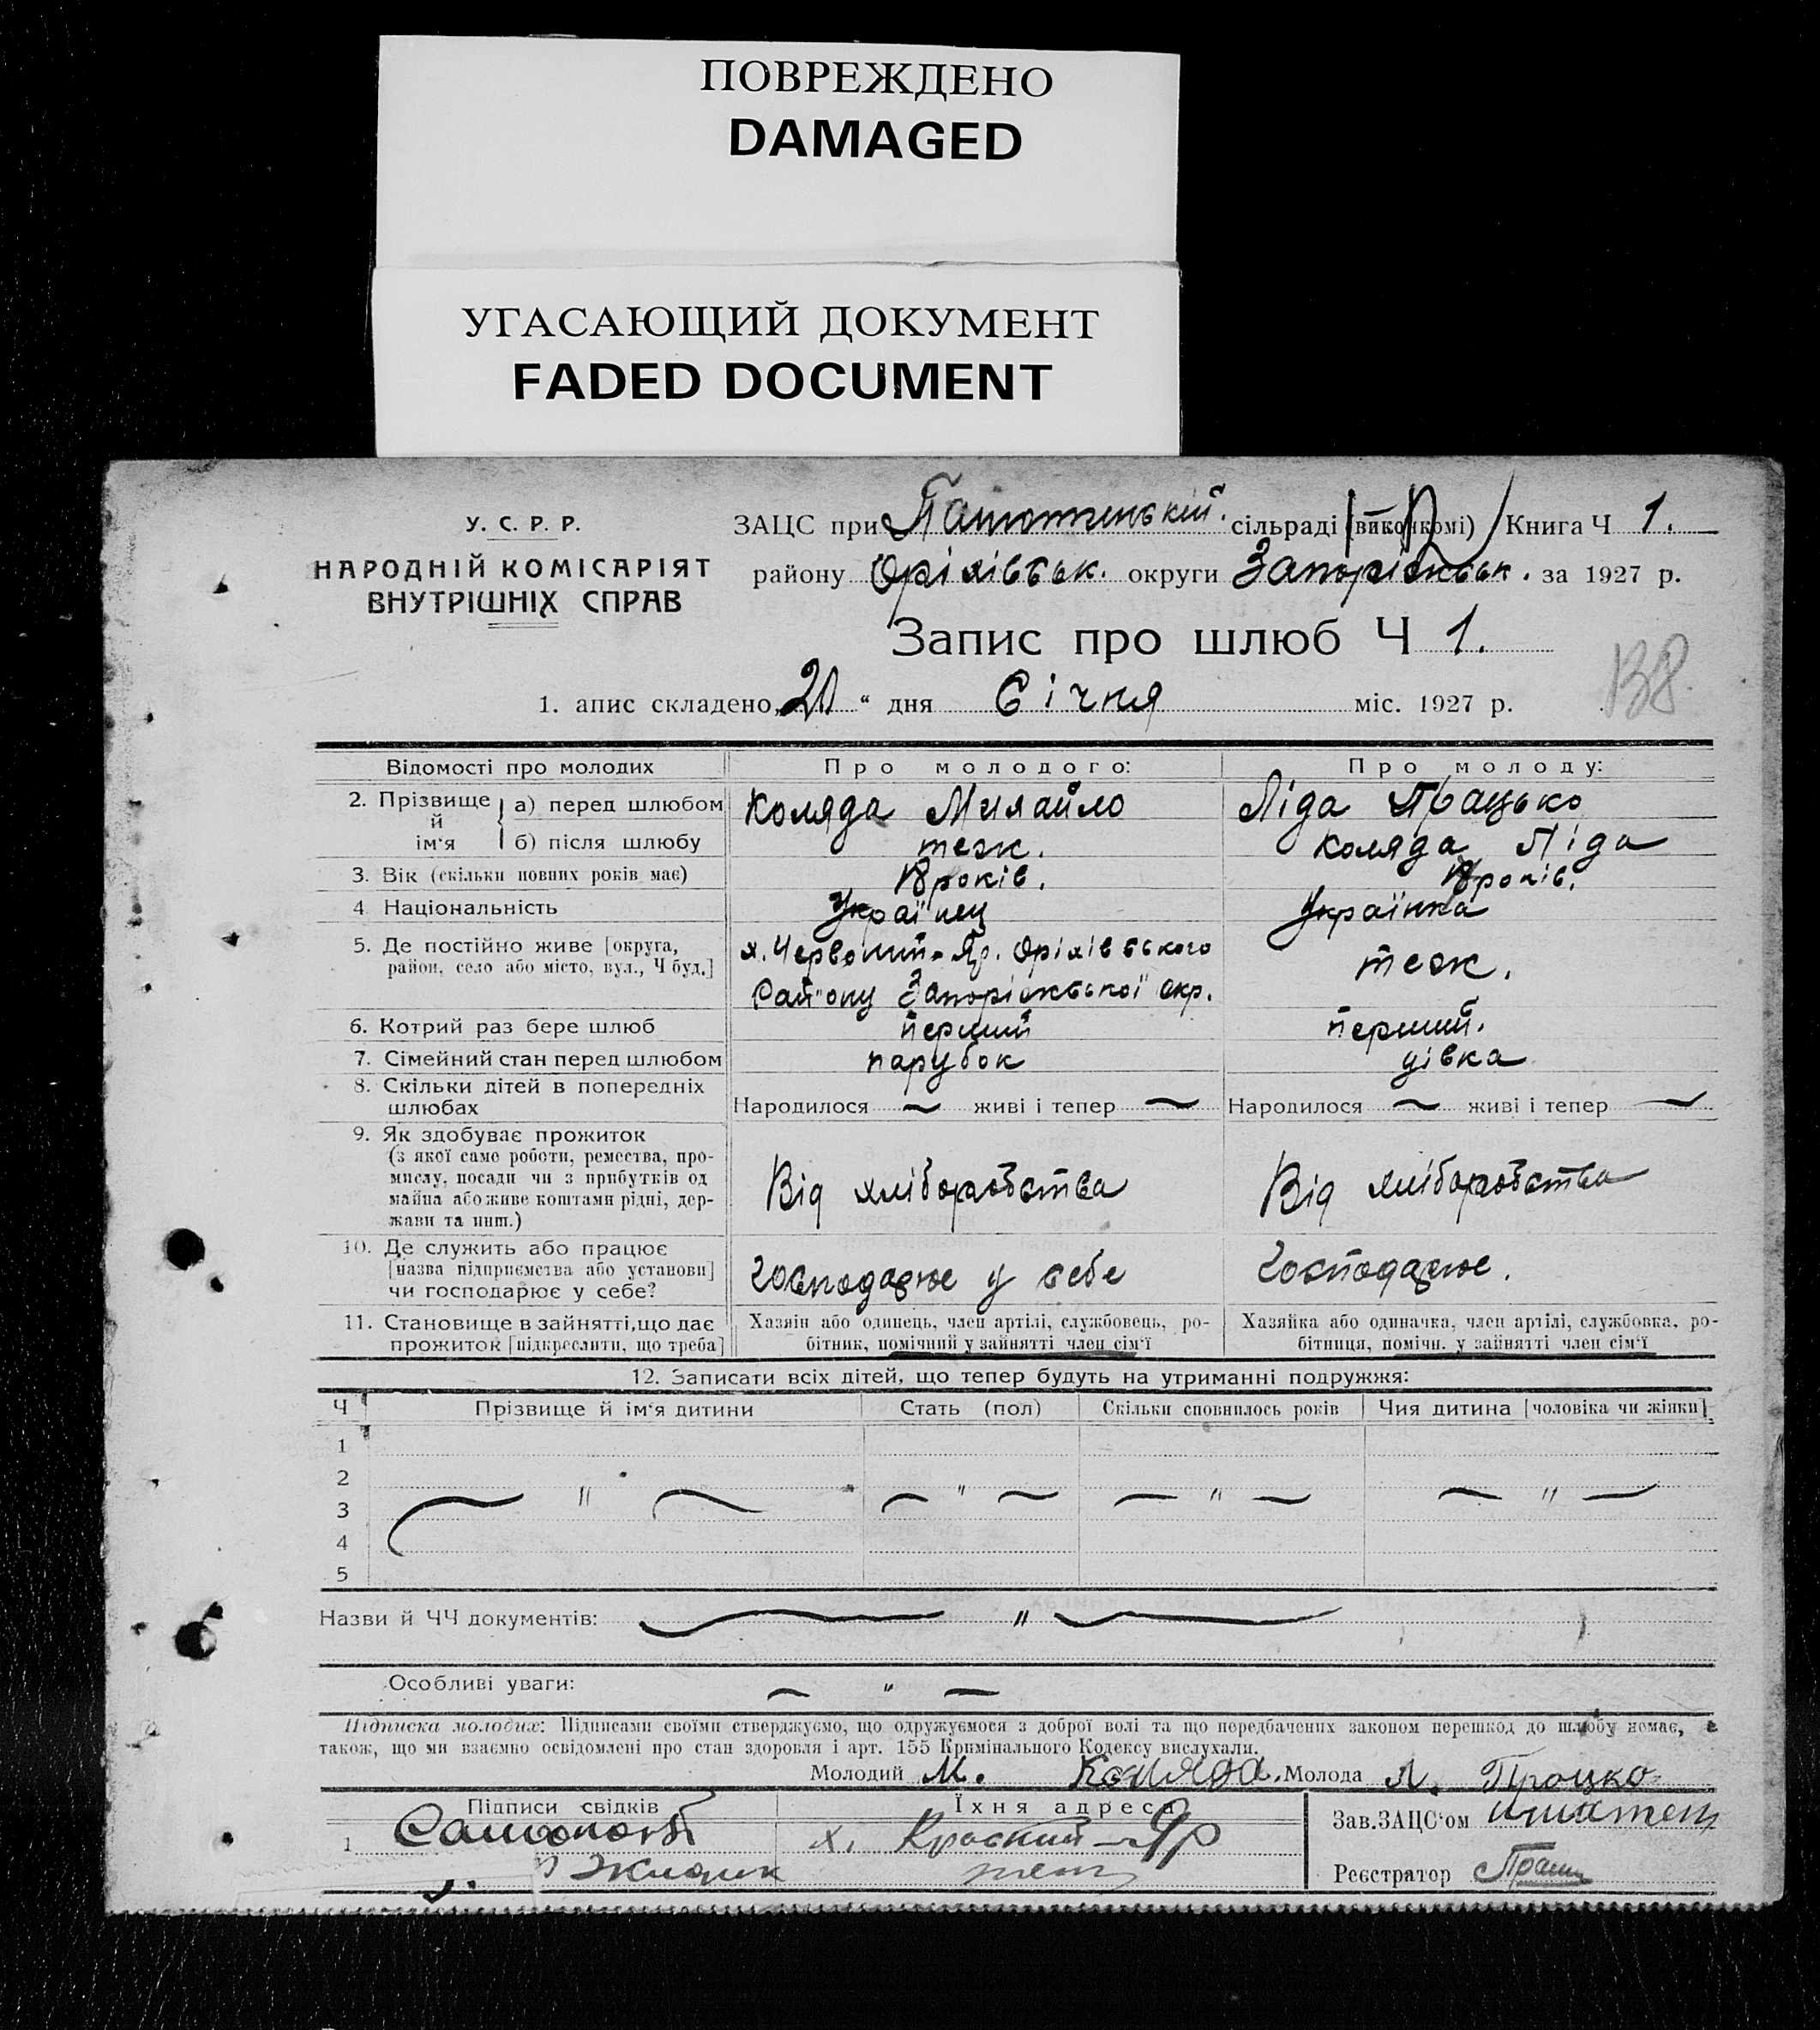 ПОВРЕЖДЕНО
DAMAGED
УГАСАЮЩИЙ ДОКУМЕНТ
FADED DOCUMENT
У. С. Р. Р.
НАРОДНІЙ КОМІСАРІЯТ
ВНУТРІШНІХ СПРАВ
ЗАЦС при сільраді (виконкомі) Книга Ч 1.
району Оріхівськ. округи Запоріжськ. за 1927 р.
Запис про шлюб Ч 1.
138
1. апис складено „20“ дня Січня міс. 1927 р.
Відомості про молодих Про молодого: Про молоду:
2. Прізвище й ім'я а) перед шлюбом Коляда Михайло Ліда Працько
б) після шлюбу теж. Коляда Ліда
3. Вік (скільки повних років має) 18 років. 18 років.
4 Національність Українец Українка
5. Де постійно живе [округа, район, село або місто, вул., Ч буд.] х. Червоний-Яр. Оріхівського Район у Запоріжської окр. теж.
6. Котрий раз бере шлюб перший перший.
7. Сімейний стан перед шлюбом парубок дівка
8. Скільки дітей в попередніх шлюбах Народилося — живі і тепер — Народилося — живі і тепер —
9. Як здобуває прожиток
(з якої саме роботи, ремества, про-
мислу, посади чи з прибутків од
майна або живе коштами рідні, дер-
жави та инш.) Від хліборобства Від хліборобства
10. Де служить або працює
[назва підприємства або установи]
чи господарює у себе? Господарює у себе Господарює.
11. Становище в зайнятті, що дає
прожиток [підкреслити, що треба]
Хазяїн або одинець, член артілі, службовець, ро-
бітник, помічний у зайнятті член сім'ї
Хазяйка або одиначка, член артілі, службовка, ро-
бітниця, помічн. у зайнятті член сім'ї
12. Записати всіх дітей, що тепер будуть на утриманні подружжя:
Ч Прізвище й ім'я дитини Стать (пол) Скільки сповнилось років Чия дитина [чоловіка чи жінки]
1
2
3 — " — — " — — " — — " —
4
5
Назви й ЧЧ документів: — " —
Особливі уваги: — " —
Підписка молодих: Підписами своїми стверджуємо, що одружуємося з доброї волі та що передбачених законом перешкод до шлюбу немає, а
також, що ми взаємно освідомлені про стан здоровля і арт. 155 Кримінального Кодексу вислухали.
Молодий М. Коляда. Молода Л. Процко
Підписи свідків Їхня адреса Зав.ЗАЦС'ом
1 х. Красний-Яр
Реєстратор